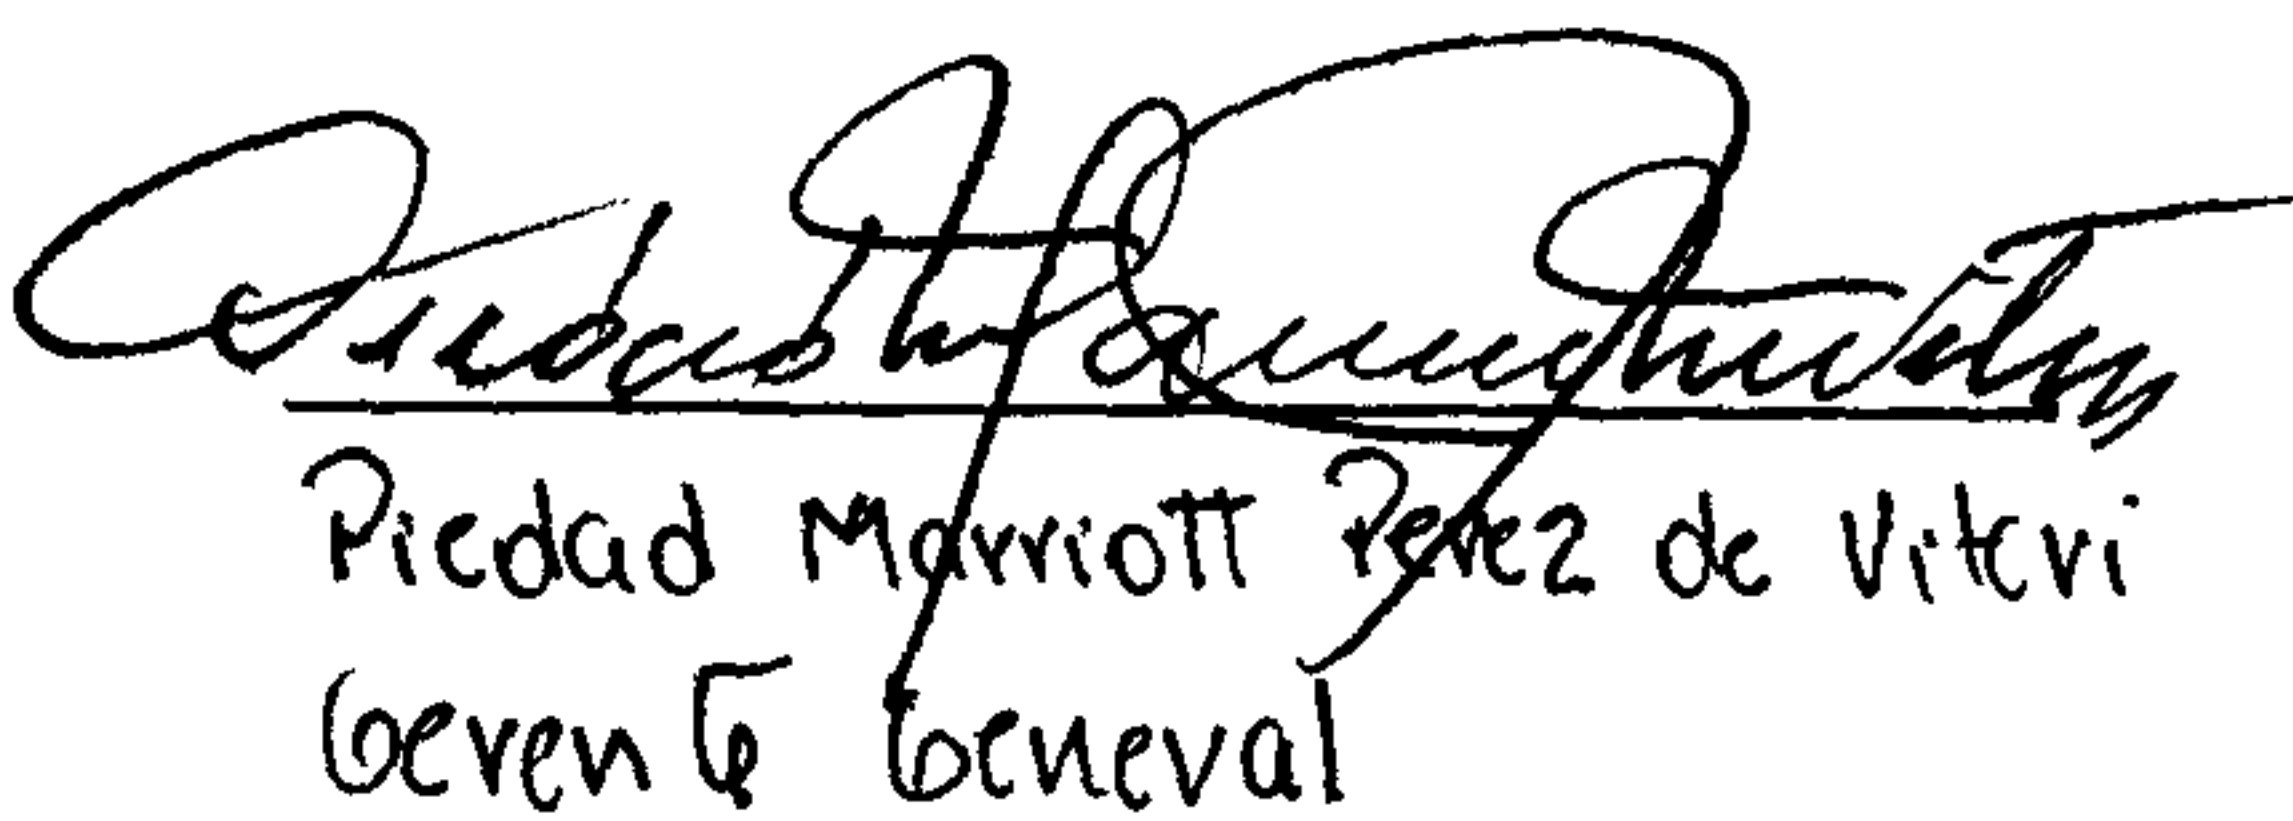 Piedad Marriott Perez de Viteri
Gerente General